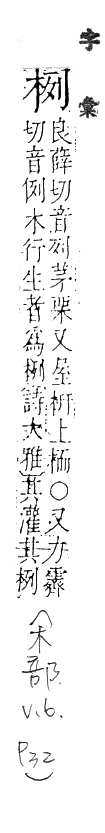 字彙
栵
良薛切音列茅栗又屋枅上栭○又力霽
切音例木行生者為栵詩大雅其灌其栵
(木部
v.6.
P32)